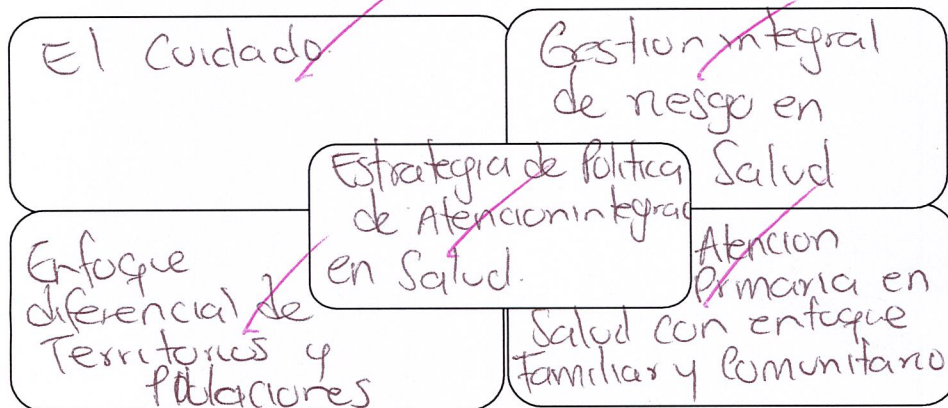 El Cuidado
Gestion integral
de riesgo en
Salud
Estrategia de Politica
de Atencion integral
en Salud.
Enfoque
diferencial de
Territorios y
Poblaciones
Atencion
Primaria en
Salud con enfoque
Familiar y Comunitario